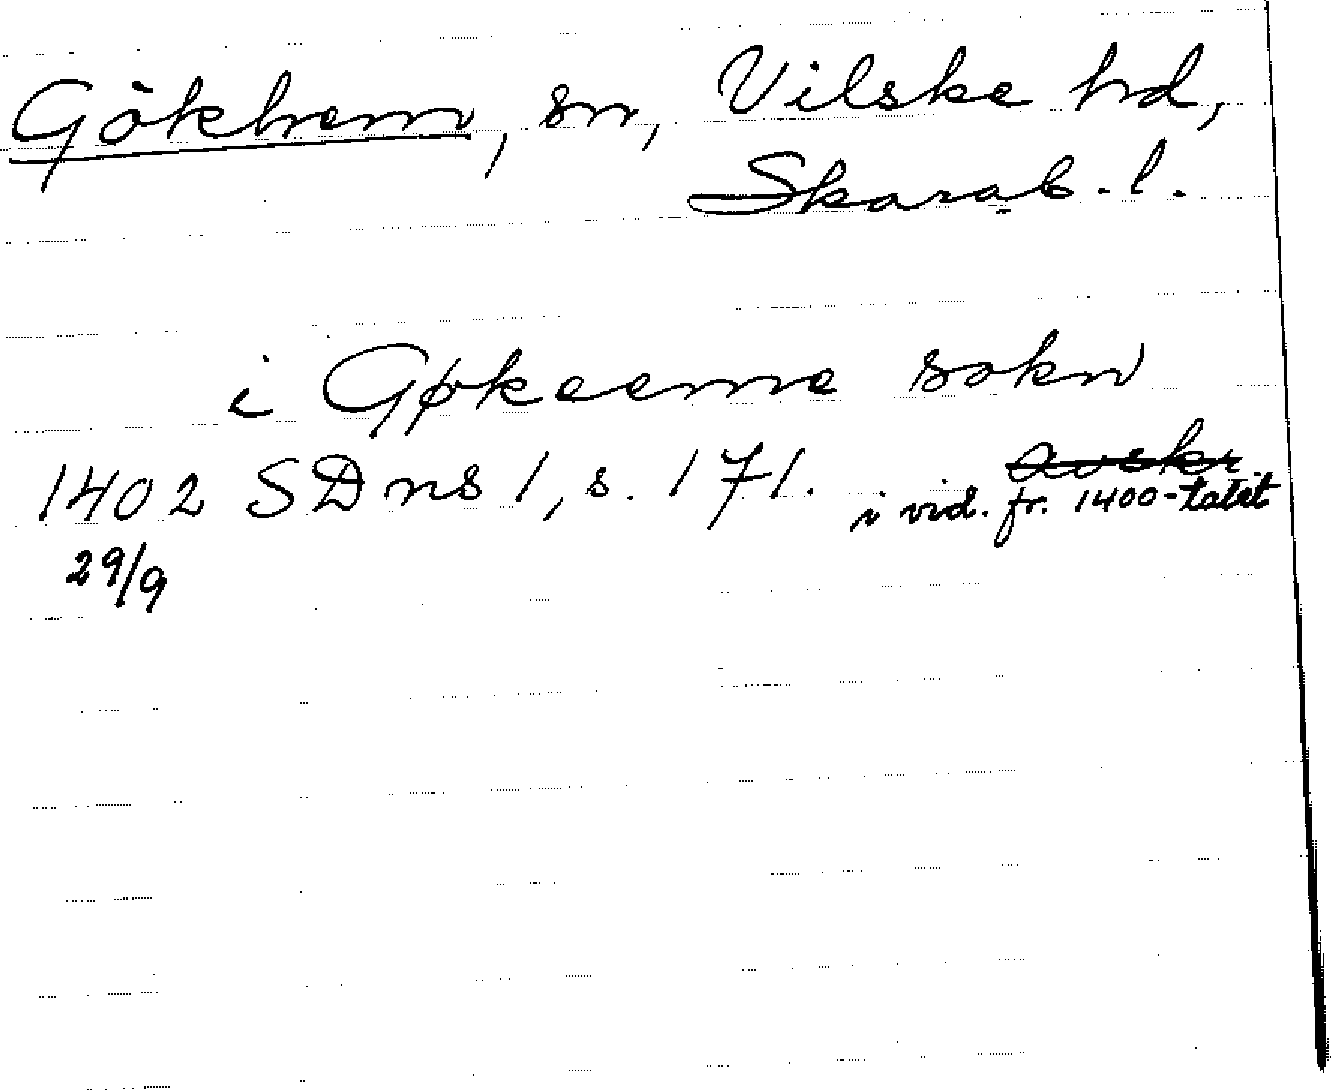 Gökhem, sn, Vilske hd,
Skarab. l.
i Gøkeeme sokn
1402 SD ns 1, s. 171. avskr.
i vid. fr. 1400-talet
29/9